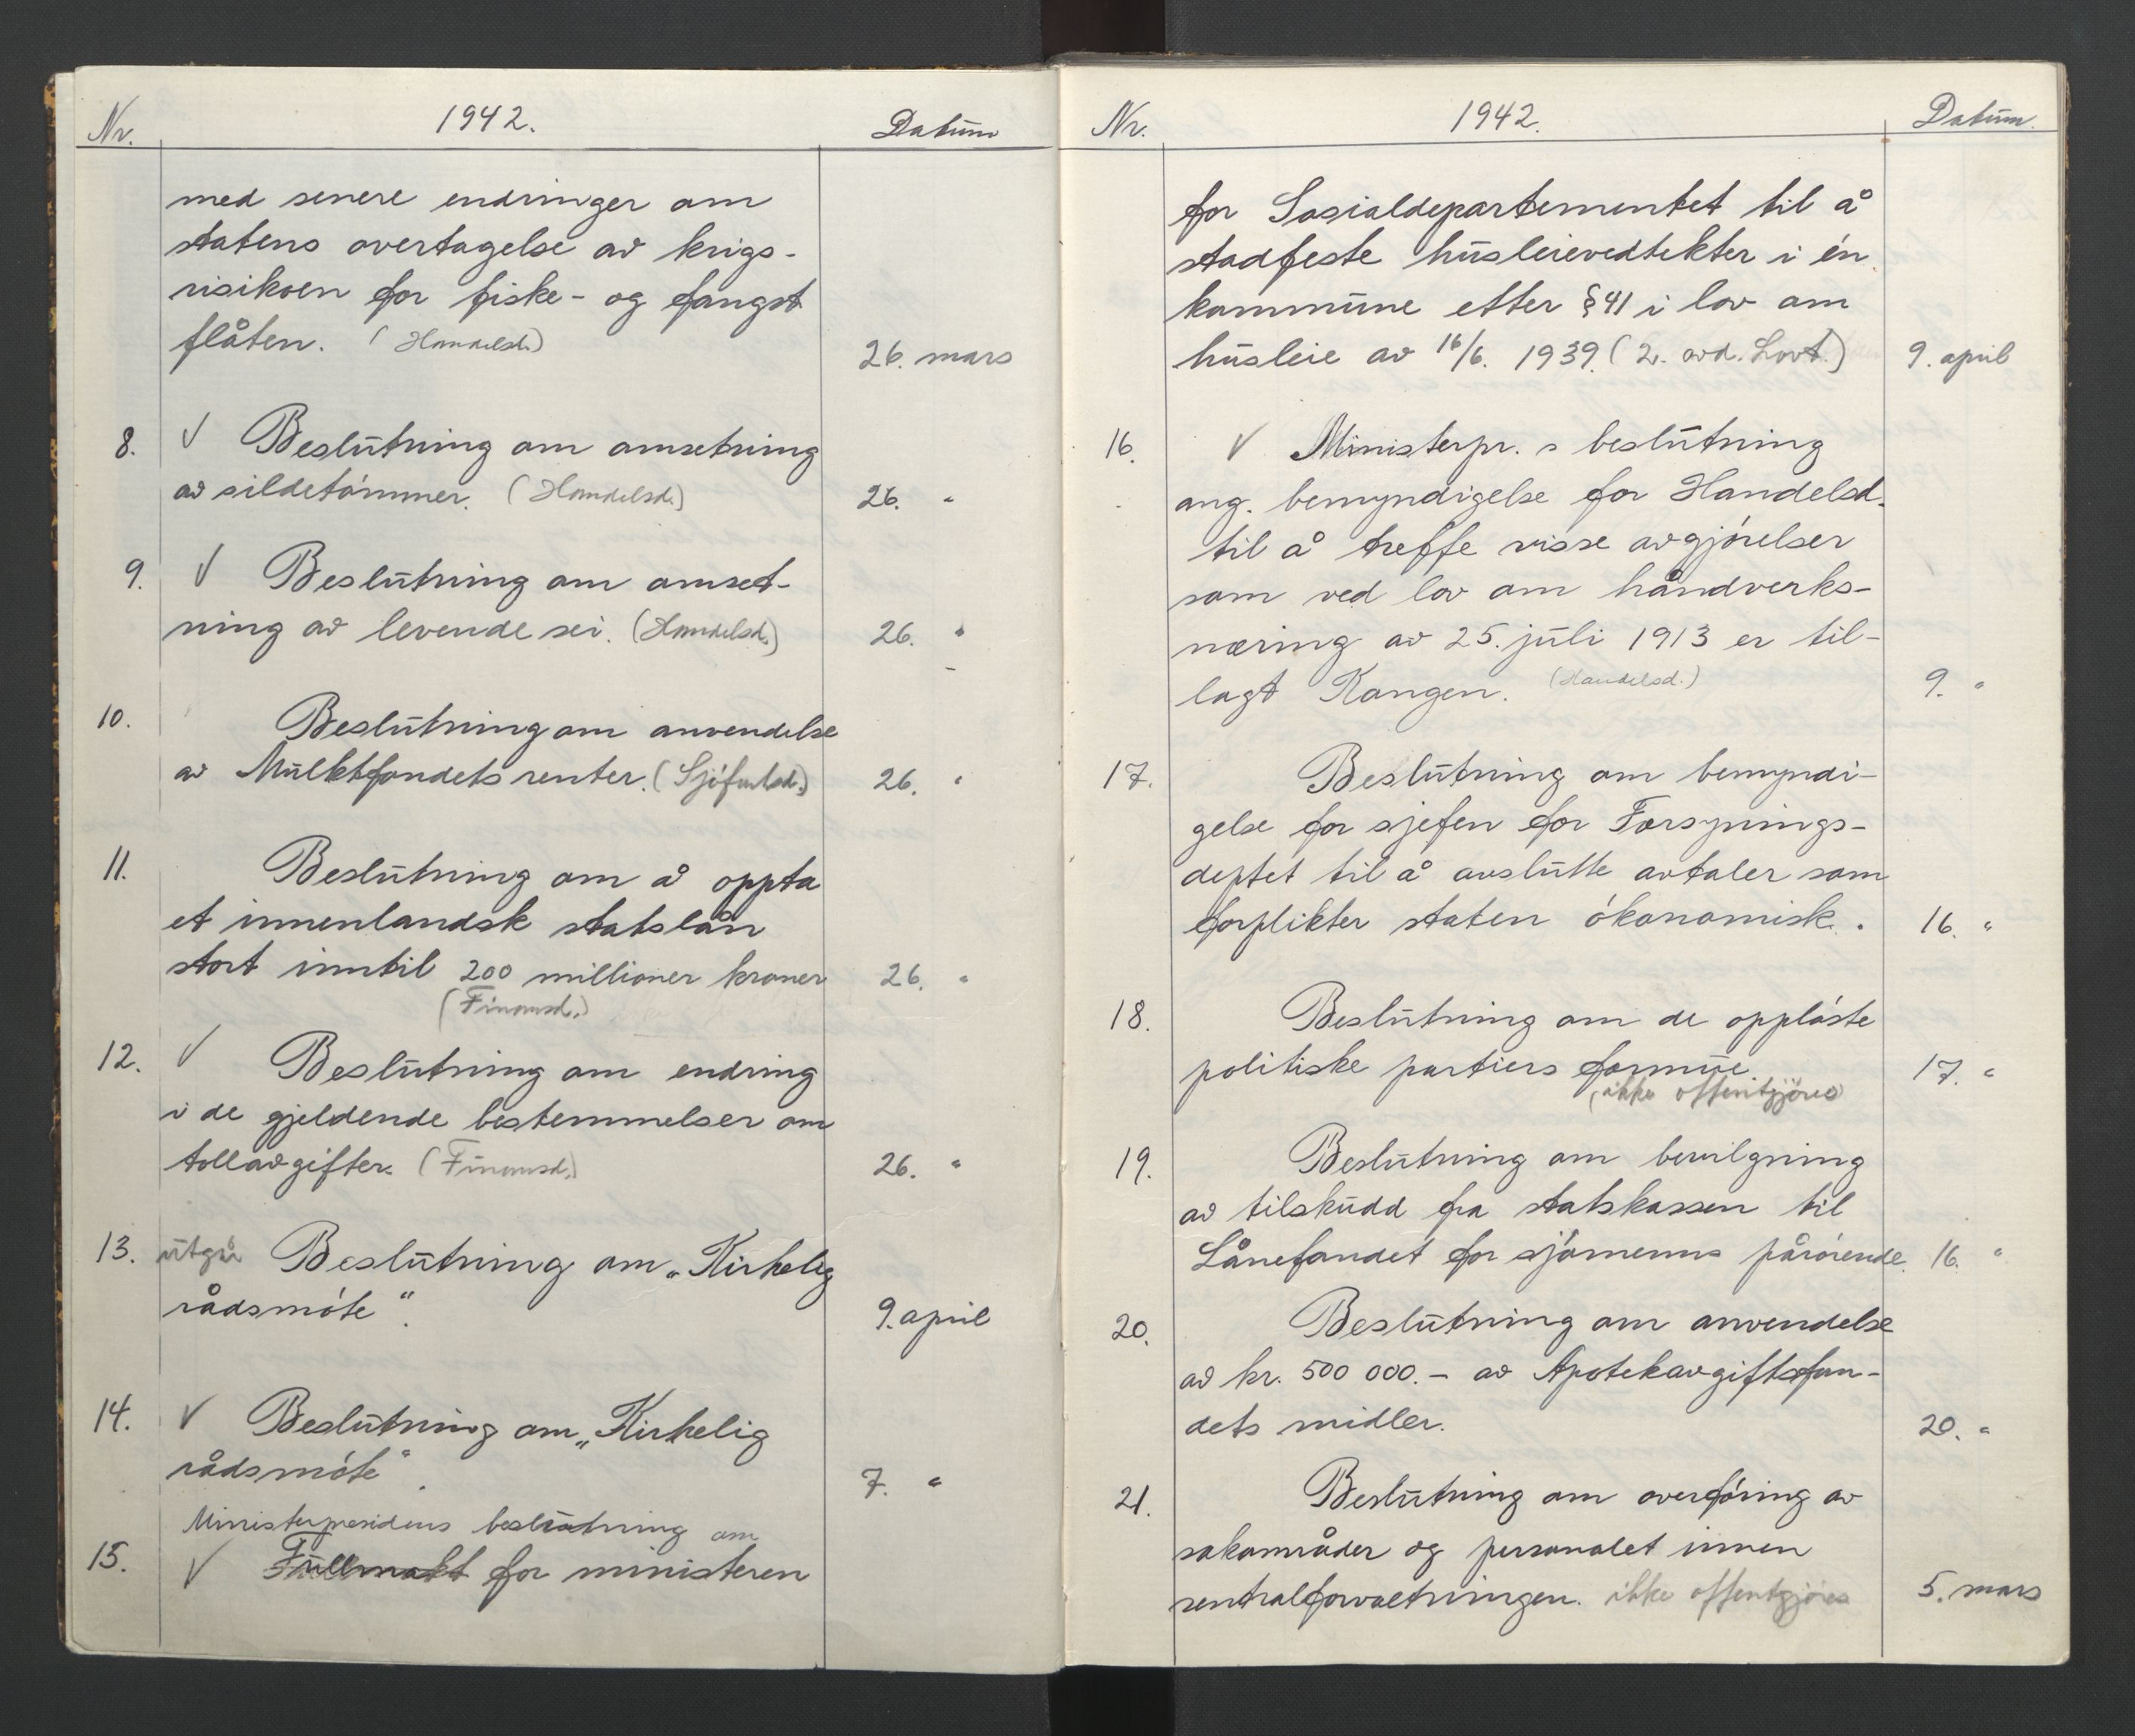 Nr. 1942. Datum
med senere endringer om
statens overtagelse av krigs-
risikoen for fiske- og fangst
flåten. (Handelsd.) 26. mars
8. V Beslutning om omsetning
av sildetömmer. (Handelsd.) 26. "
9. V Beslutning om omset-
ning av levende sei. (Handelsd.) 26. "
10. Beslutning om anvendelse
av Mulktfondets renter. (Sjöfartsd.) 26. "
11. Beslutning om å oppta
et innenlandsk statslån
stort inntil 200 millioner kroner 26. "
(Finansd.)
12. V Beslutning om endring
i de gjeldende bestemmelser om
tollavgifter. (Finansd.) 26. "
13. utgår Beslutning om „Kirkelig
rådsmöte“. 9. april
14. V Beslutning om „Kirkelig
rådsmöte“. 7. "
Ministerpresidens beslutning om
15. V Fullmakt for ministeren
Nr. 1942. Datum.
for Sosialdepartementet til å
stadfeste husleievedtekter i én
kommune etter § 41 i lov om
husleie av 16/6. 1939. (2. avd. Lovt.) 9. april
16. V Ministerpr. s beslutning
ang. bemyndigelse for Handelsd.
til å treffe visse avgjörelser
som ved lov om håndverks-
næring av 25. juli 1913 er til-
lagt Kongen. (Handelsd.) 9. "
17. Beslutning om bemyndi-
gelse for sjefen for Forsynings-
deptet til å avslutte avtaler som
forplikter staten ökonomisk. 16. "
18. Beslutning om de opplöste
politiske partiers formue 17. "
(ikke offentgjöres
19. Beslutning om bevilgning
av tilskudd fra statskassen til
Lånefondet for sjömenns pårörende. 16. "
20. Beslutning om anvendelse
av kr. 500 000.- av Apotekavgiftsfon-
dets midler. 20. "
21. Beslutning om overföring av
sakområder og personalet innen
sentralforvaltningen. ikke offentgjöres 5. mars